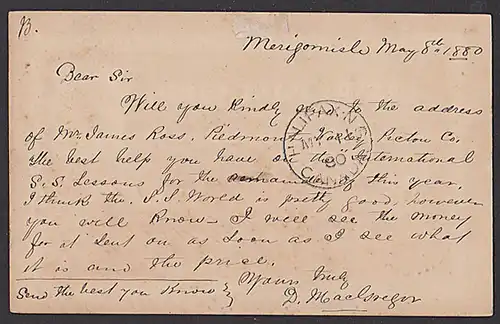 B.
Merigomish May 8th 1880
Dear Sir
Will you kindly send to the address
of Mr James Ross. Piedmont Valley, Pictou Co.
the best help you have on the International
S. S. Lessons for the remainder of this year.
I think the S. S. World is pretty good, however
you will know – I will see the money
for it sent on as soon as I see what
it is and the price.
Yours truly
D. MacGregor
Send the best you know
HALIFAX N.S.
MY
80
CANADA